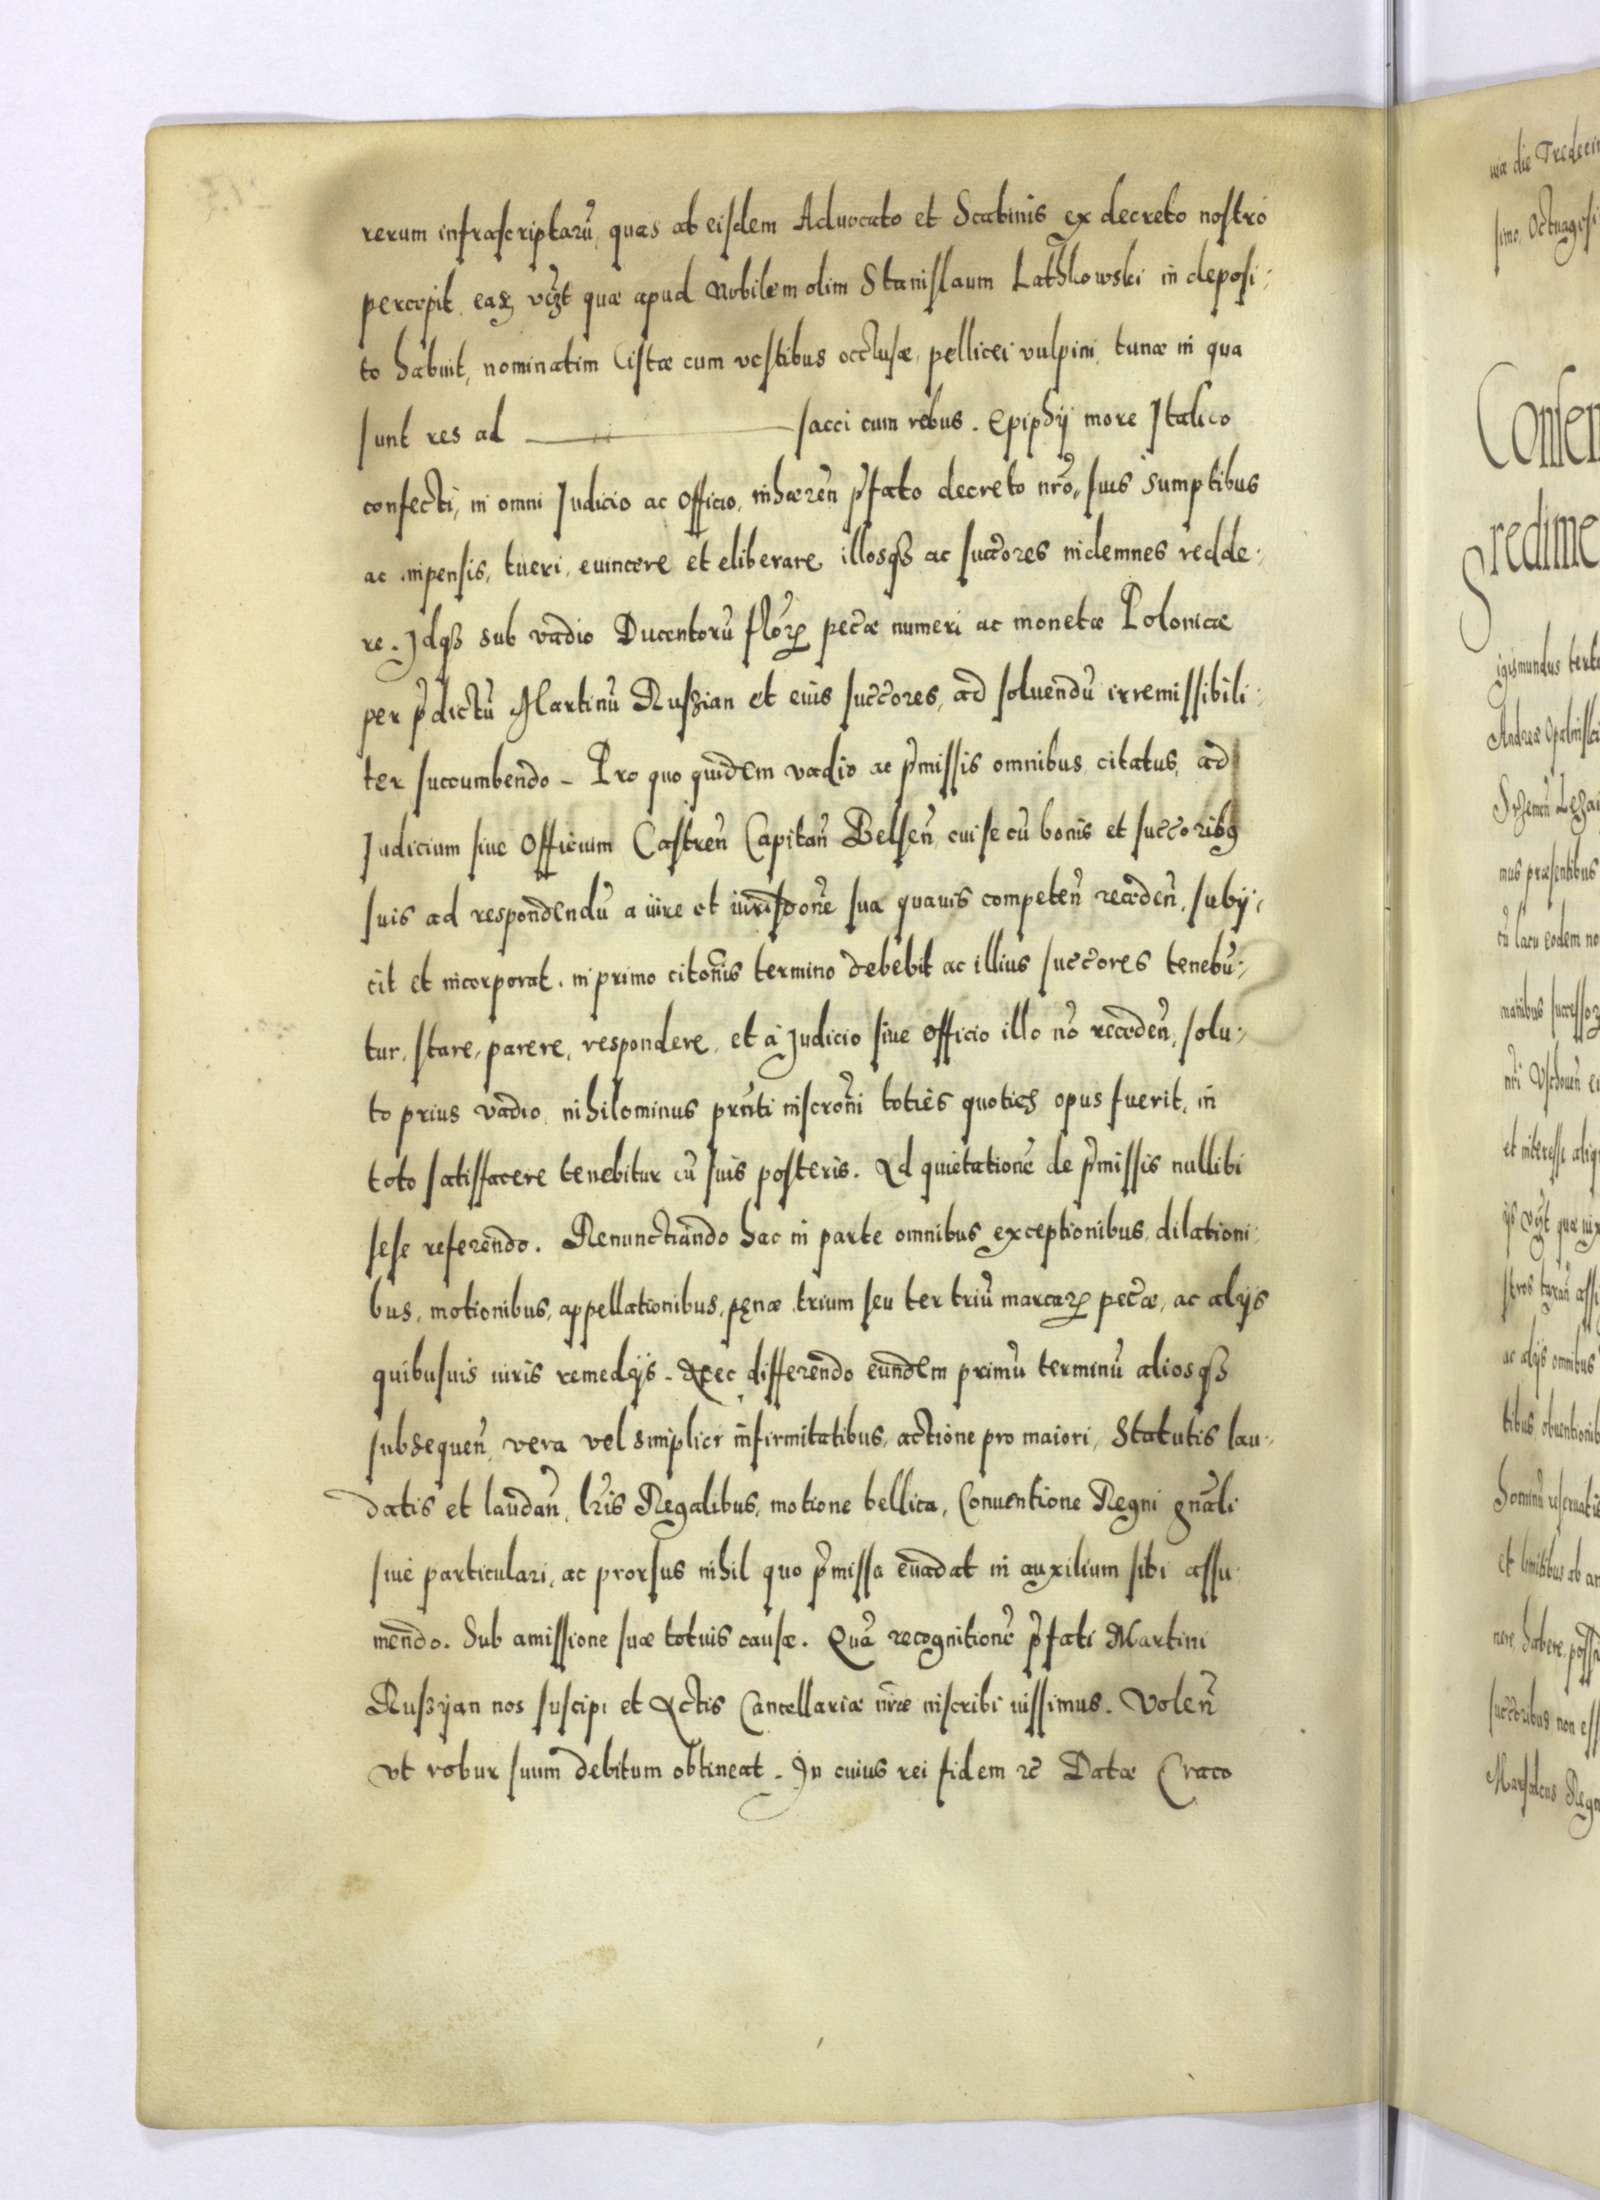 rerum infrascriptarũ, quas ab eisdem Aduocato et Scabinis ex decreto nostro
percepit, eaꝝ vczt quæ apud Nobilem olim Stanislaum Lathkowski in deposi:
to habuit, nominatim Cistæ cum vestibus occlusæ, pellicei vulpini, tunæ in qua
sunt res ad — sacci cum rebus. Epiphÿ more Italico
confecti, in omni Judicio ac Officio, inhæreñ p̃fato decreto nr̃o, suis sumptibus
ac impensis, tueri, euincere et eliberare, illosqȝ ac succ̃ores indemnes redde:
re. Jdqȝ sub vadio Ducentorũ flor̃ꝝ pec̃æ numeri ac monetæ Polonicæ
per p̃dictũ Martinũ Ruszian et eius succ̃ores, ad soluendũ irremissibili:
ter succumbendo – Pro quo quidem vadio ac p̃missis omnibus citatus, ad
Judicium siue Officium Castreñ Capitañ Belseñ, cui se cũ bonis et succ̃oribꝯ
suis ad respondendũ a iure et iurisd̃one sua quauis competeñ recedeñ, subÿ:
cit et incorporat, in primo citõnis termino debebit ac illius succ̃ores tenebũ:
tur, stare, parere, respondere, et à Judicio siue Officio illo nõ recedeñ, solu:
to prius vadio, nihilominus pr̃nti inscr̃oni toties quoties opus fuerit, in
toto satisfacere tenebitur cũ suis posteris. Ad quietationẽ de p̃missis nullibi
sese referendo. Renunctiando hac in parte omnibus exceptionibus, dilationi:
bus, motionibus, appellationibus, pęnæ trium seu ter triũ marcarꝝ pec̃æ, ac alÿs
quibusuis iuris remedÿs – Nec differendo eundem primũ terminũ aliosqȝ
subsequeñ, vera vel simplici infirmitatibus, actione pro maiori, Statutis lau:
datis et laudañ, lr̃is Regalibus, motione bellica, Conuentione Regni gnãli
siue particulari, ac prorsus nihil quo p̃missa euadat in auxilium sibi assu:
mendo. Sub amissione suæ totius causæ. Quã recognitionẽ p̃fati Martini
Ruszÿan nos suscipi et Actis Cancellariæ nr̃æ inscribi iussimus. Voleñ
vt robur suum debitum obtineat. In cuius rei fidem ꝛc̃ Datæ Craco
uiæ die
Consen
redime
igismundus
Andreæ
mus præsentibus
ac alÿs omnibus
nere, habere, poss
succ̃oribus non ess
Marsalcus Regn